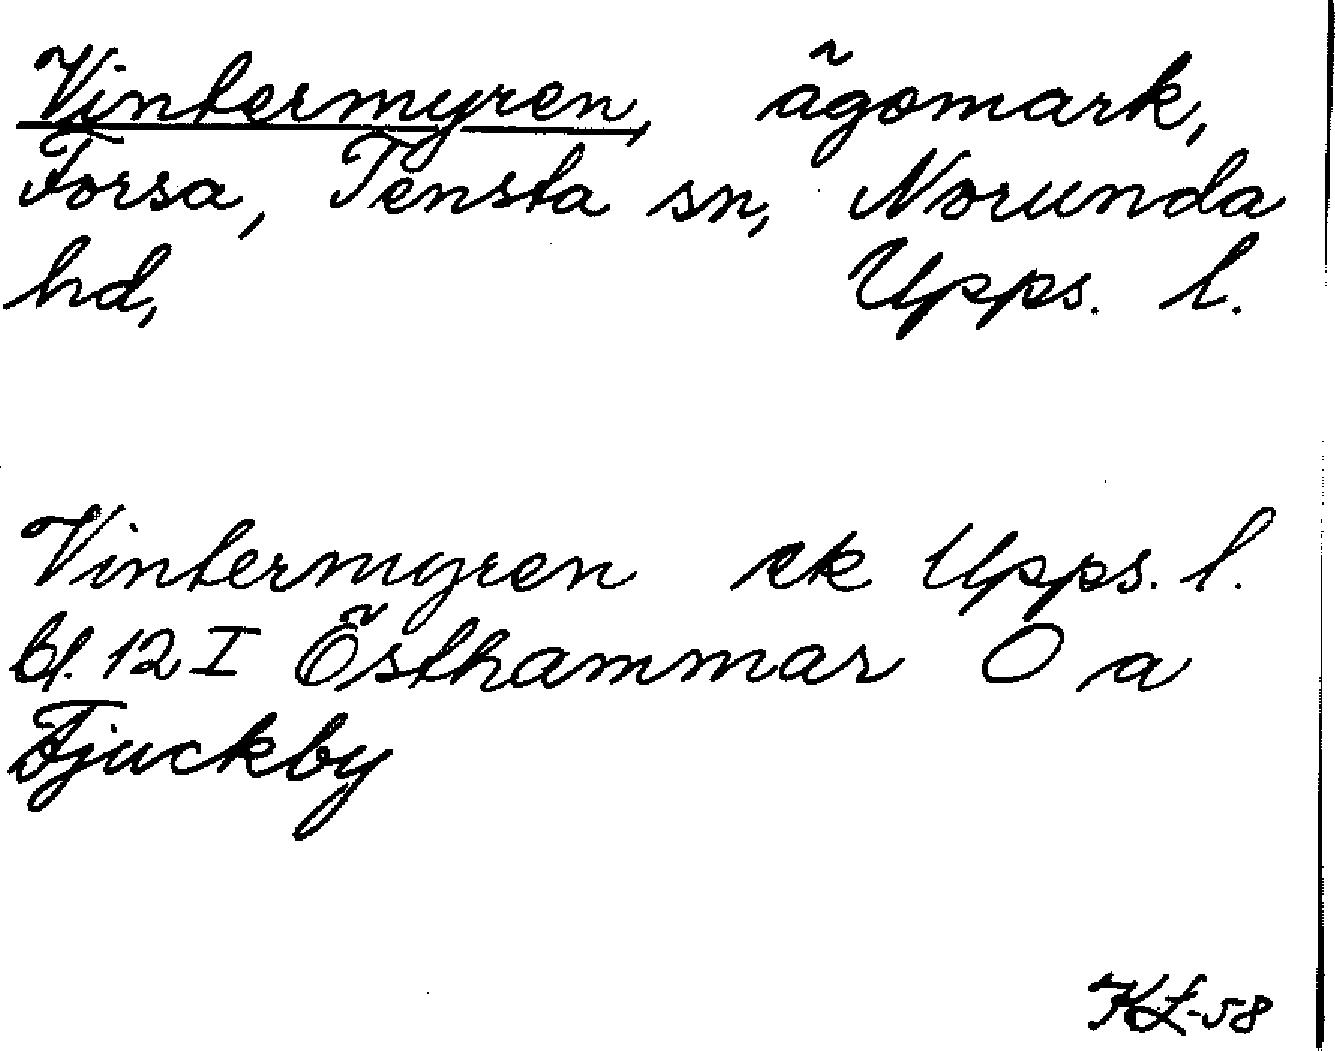 Vintermyren, ägomark,
Forsa, Tensta sn, Norunda
hd, Upps. l.
Vintermyren ek Upps. l.
bl. 12 I Östhammar O a
Fjuckby
KL-58